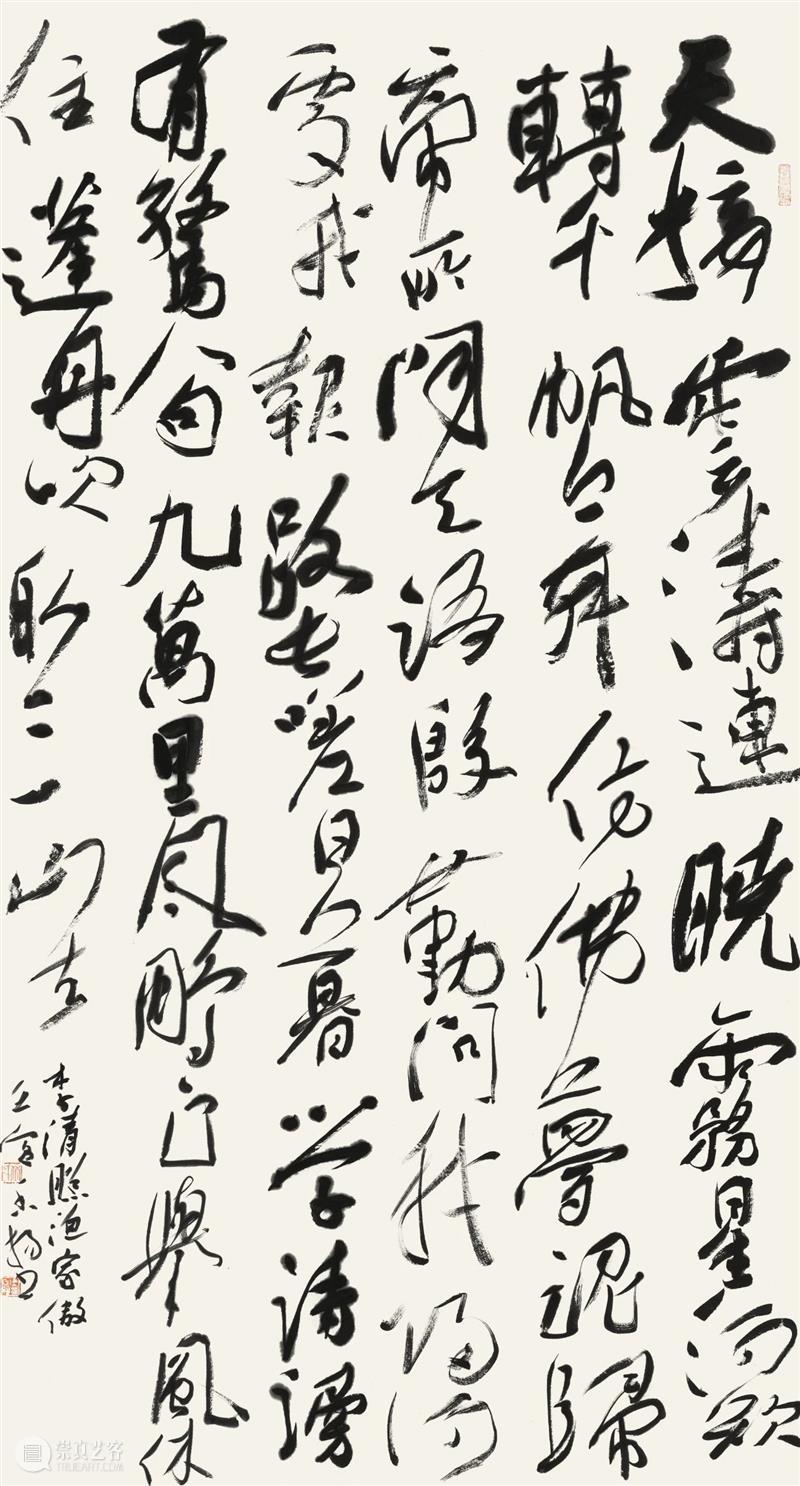 天接雲濤連曉霧星河欲
轉千帆舞仿佛夢魂歸
帝所聞天語殷勤問我歸何
處我報路長嗟日暮学詩謾
有驚人句九萬里風鵬正舉風休
住蓬舟吹取三山去
李清照漁家傲
壬寅
崇真艺客
TRUEART.COM